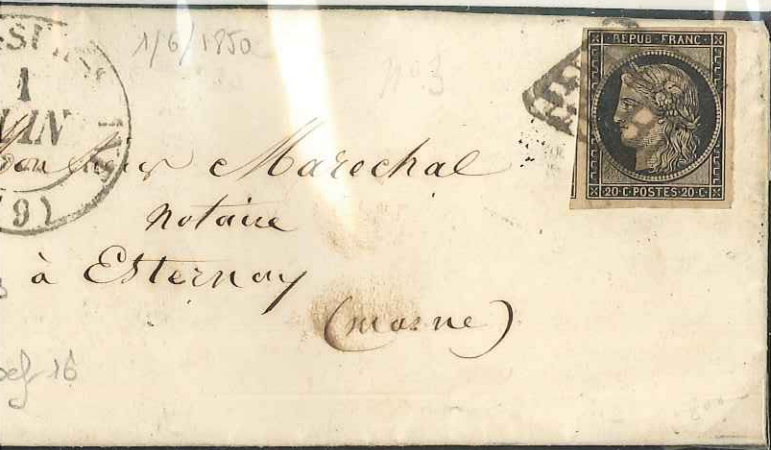 1/6/1850
n° 3
REPUB·FRANC
20·C·POSTES·20·C
1
UIN
(9)
Monsieur Marechal
Notaire
à Esternay
(Marne)
16